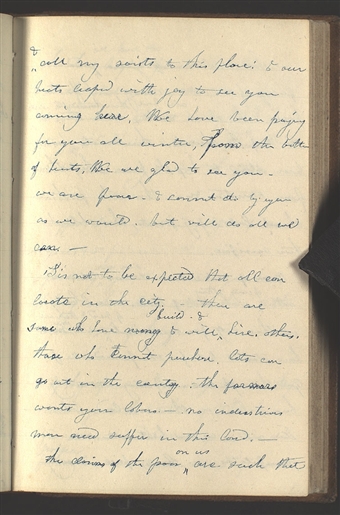 &
call my saints to this place! & our
hearts leaped with joy to see you
coming here, We have been praying
for you all winter, from the bottom
of hearts, We are glad to see you -
we are poor - & cannot do by you
as we would. but will do all we
can -
It is not to be expected that all can
locate in the city - there are
build - &
some who have money & will, hire others,
those who cannot purchase lots can
go out in the country - the farmers
wants your labor - no industrious
man need suffer in this land. -
on us
the claims of the poor are such that